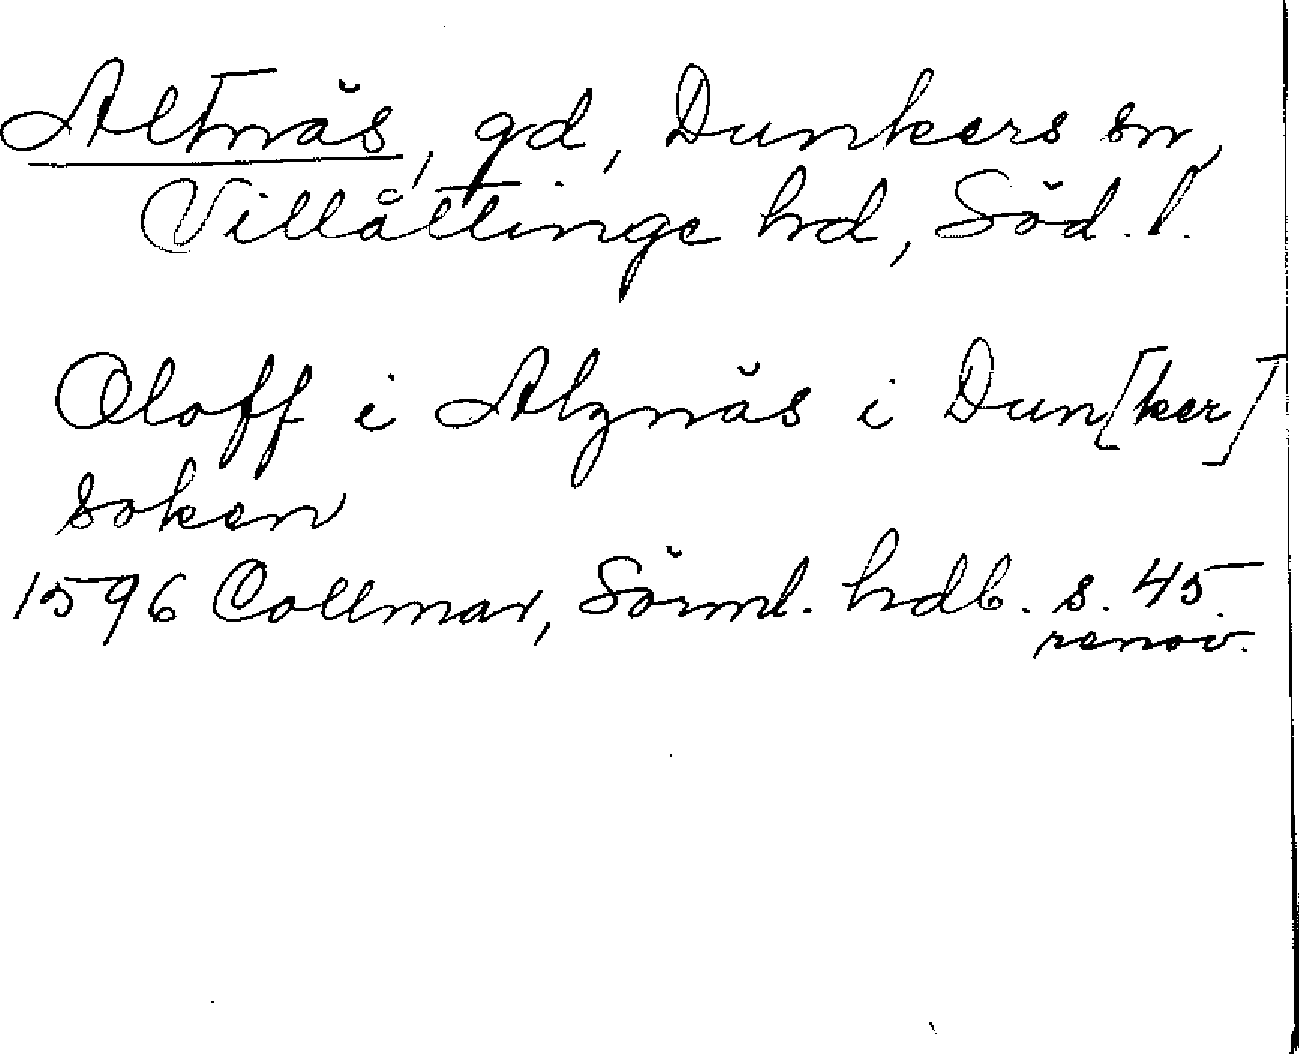 Altnäs, gd, Dunkers sn,
Villåttinge hd, Söd. l.
Oloff i Alznäs i Dun[ker]
soken
1596 Collmar, Sörml. hdb. s. 45.
renov.